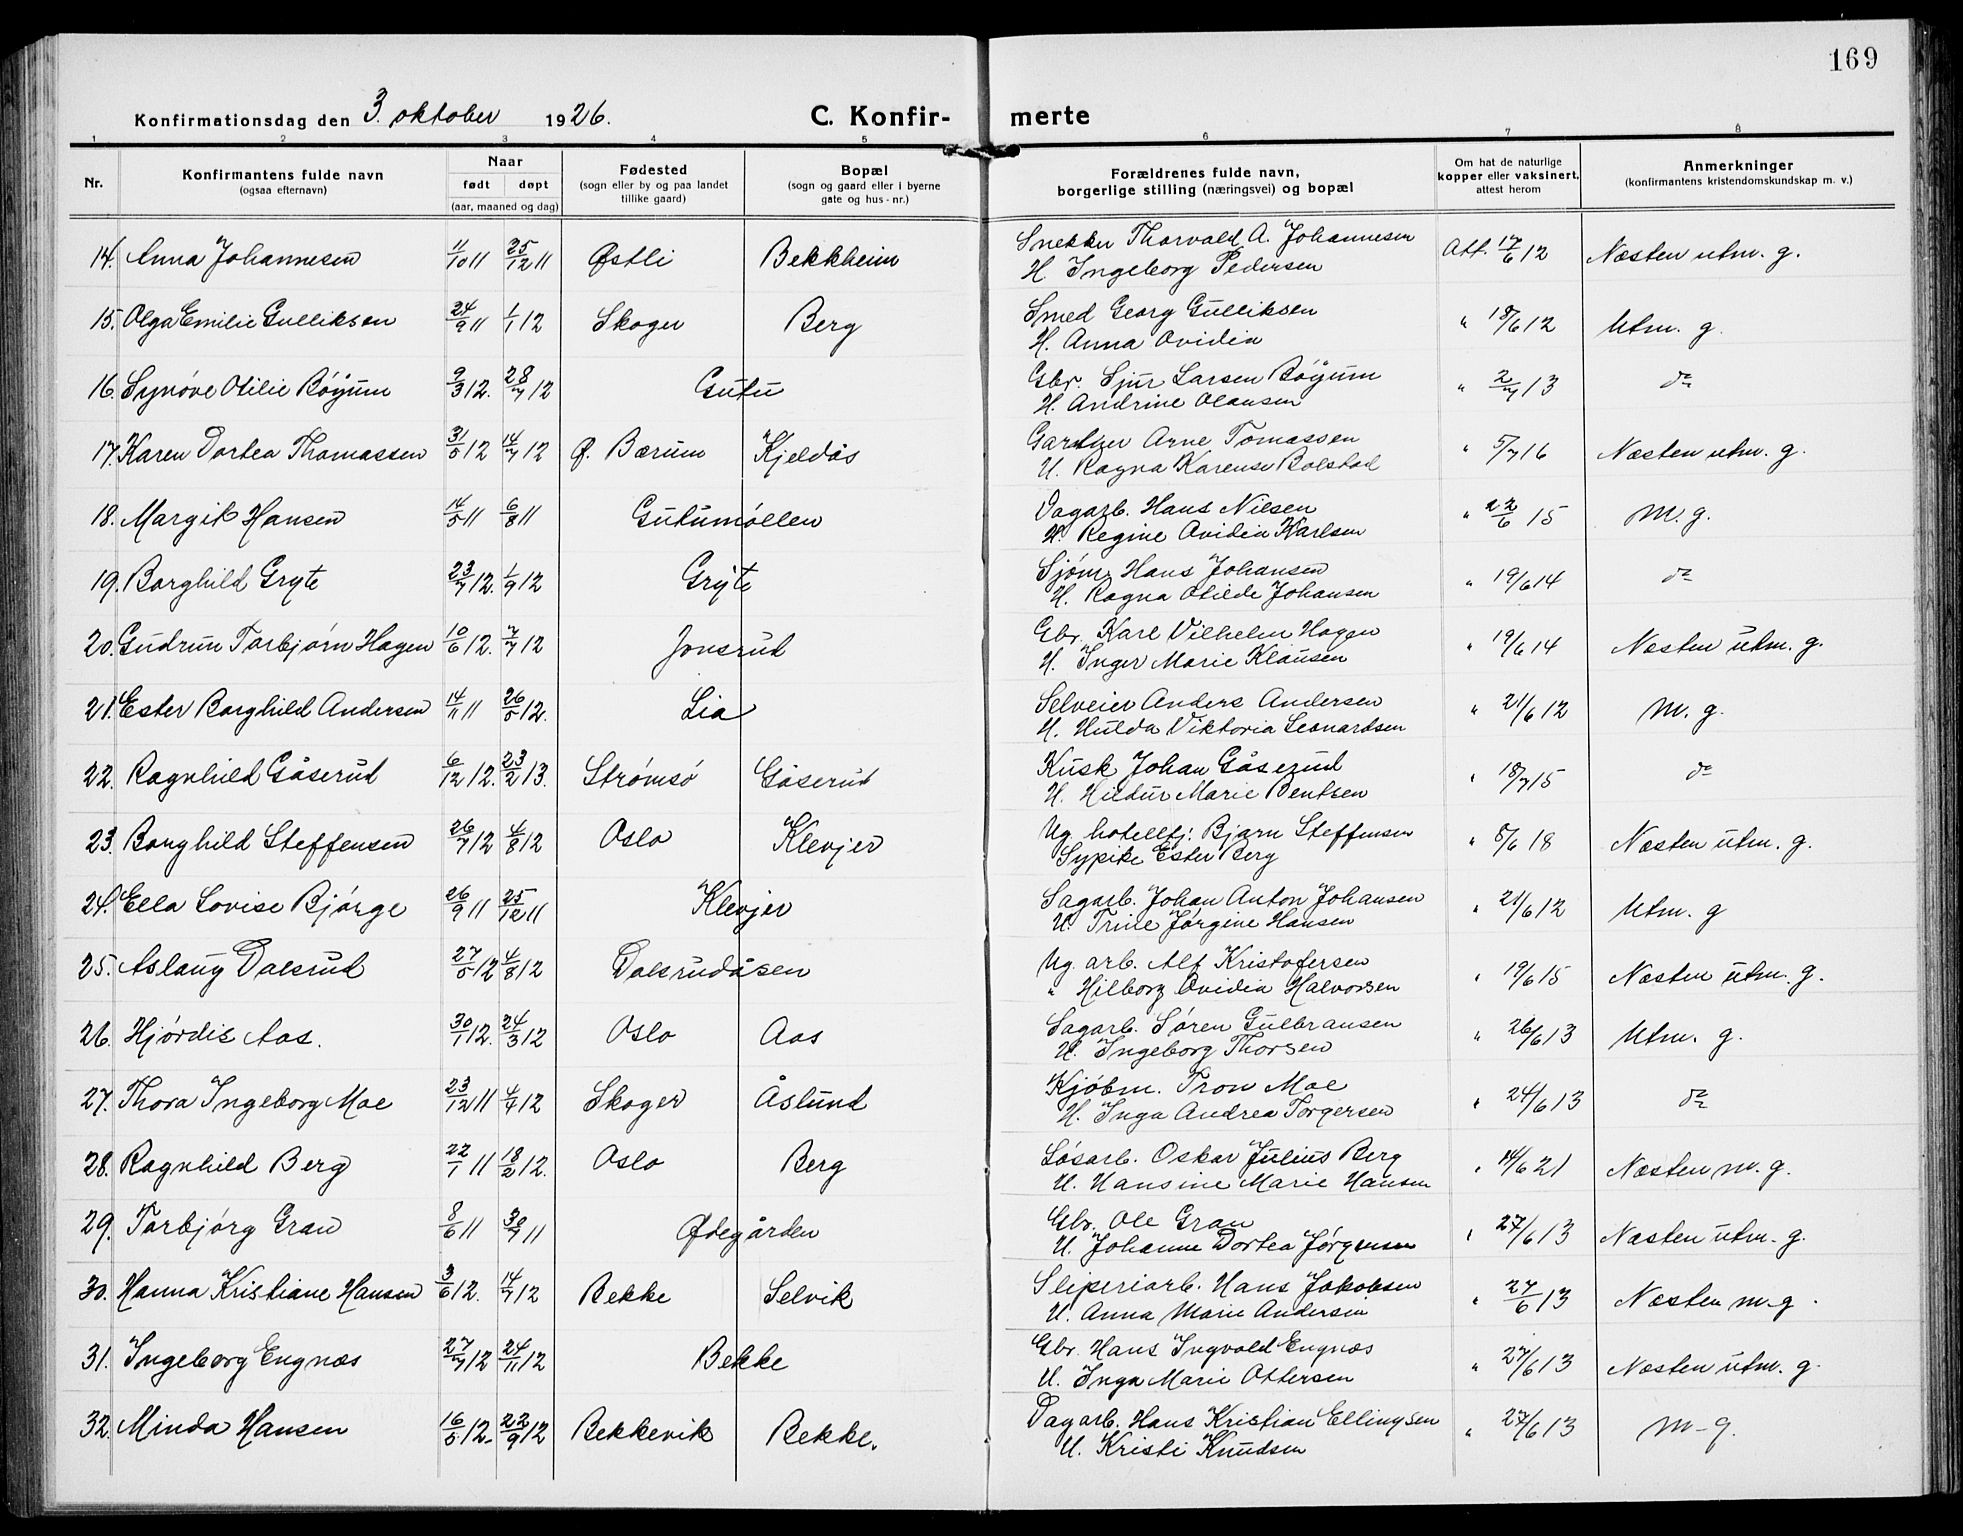 169
Konfirmationsdag den 3. oktober 1926. C. Konfirmerte
1 2 3 4 5 6 7 8
Nr. Konfirmantens fulde navn (ogsaa efternavn) Naar født døpt (aar, maaned og dag) Fødested (sogn eller by og paa landet tillike gaard) Bopæl (sogn og gaard eller i byerne gate og hus-nr.) Forældrenes fulde navn, borgerlige stilling (næringsvei) og bopæl Om hat de naturlige kopper eller vaksinert, attest herom Anmerkninger (konfirmantens kristendomskundskap m. v.)
14. Anna Johannesen 11/10 11 25/12 11 Østli Bekkheim Snekker Thorvald A. Johannesen Att. 17/6 12 Næsten utm. g.
H Ingeborg Pedersen
15. Olga Emilie Gulliksen 24/9 11 1/1 12 Skoger Berg Smed Georg Gulliksen " 18/6 12 Utm. g.
H. Anna Ovidia
16. Synøve Otilie Bøyum 9/3 12. 28/7 12 Gutu Gbr. Sjur Larsen Bøyum " 2/7 13 do
H. Andrine Olausen
17. Karen Dortea Thomassen 31/5 12 14/7 12 Ø. Bærum Kjeldås Gartner Arne Tomassen " 5/7 16 Næsten utm. g.
H. Ragna Karense Bolstad
18. Margit Hansen 14/5 11 6/8 11 Gutumøllen Dagarb. Hans Nilsen " 22/6 15 M. g.
H. Regine Ovidia Karlsen
19. Borghild Gryte 23/7 12. 1/9 12 Gryte Sjøm. Hans Johansen " 19/6 14 do
H. Ragna Otilde Johansen
20. Gudrun Torbjørn Hagen 10/6 12. 7/7 12 Jonsrud Gbr. Karl Vilhelm Hagen " 19/6 14 Næsten utm. g.
H. Inger Marie Klausen
21. Ester Borghild Andersen 14/11 11 26/5 12. Lia Selveier Anders Andersen " 21/6 12 M. g.
H. Hulda Viktoria Leonardsen
22. Ragnhild Gåserud 6/12 12. 23/2 13. Strømsø Gåserud Kusk Johan Gåserud " 18/7 15 do
H. Hildur Marie Bentsen
23. Borghild Steffensen 26/7 12 4/8 12 Oslo Klevjer Ug. hotelltj. Bjarn Steffensen " 5/6 18 Næsten utm. g.
Sypike Ester Berg
24. Ella Lovise Bjørge 26/9 11 25/12 11 Klevjer Sagarb. Johan Anton Johansen " 21/6 12 Utm. g
H. Trine Jørgine Hansen
25. Aslaug Dalsrud 27/5 12 4/8 12 Dalsrudåsen Ug. arb. Alf Kristofersen " 19/6 15 Næsten utm. g.
" Hilborg Ovidia Halvorsen
26. Hjørdis Aas. 30/1 12. 24/3 12 Oslo Aas Sagarb. Søren Gulbransen " 26/6 13 Utm. g.
H. Ingeborg Thorsen
27. Thora Ingeborg Moe 23/12 11 4/4 12 Skoger Åslund Kjøbm. Tron Moe " 24/6 13 do
H. Inga Andrea Torgersen
28. Ragnhild Berg 22/1 11 18/2 12. Oslo Berg Løsarb. Oskar Julius Berg " 14/6 21 Næsten m. g.
H. Hansine Marie Hansen
29. Torbjørg Gran 8/6 11 30/7 11 Ødegården Gbr. Ole Gran " 27/6 13 Næsten utm. g.
H. Johanne Dortea Jørgensen
30. Hanna Kristiane Hansen 3/6 12. 14/7 12 Bekke Selvik Sliperiarb. Hans Jakobsen " 27/6 13 Næsten m. g.
H. Anna Marie Andersen
31. Ingeborg Engnæs 27/7 12 24/11 12 Bekke Gbr. Hans Ingvald Engnæs " 27/6 13 Næsten utm. g.
H. Inga Marie Ottersen
32. Minda Hansen 16/5 12. 22/9 12 Bekkevik Bekke. Dagarb. Hans Kristian Ellingsen " 27/6 13 M-g.
H. Kristi Knudsen